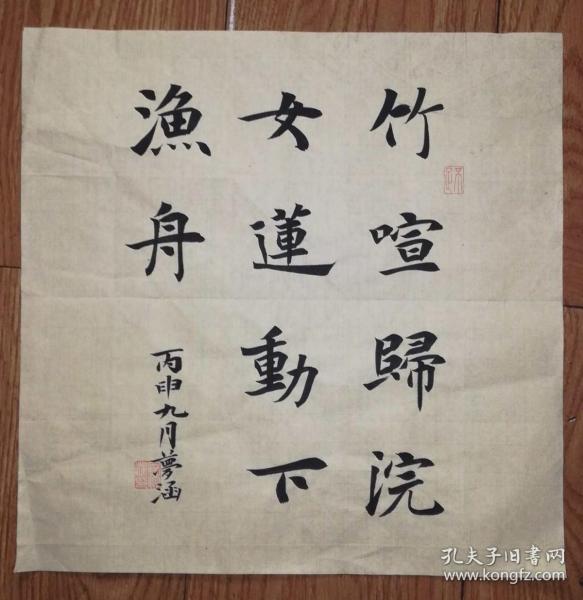 竹喧歸浣
女蓮動下
漁舟
丙申九月夢涵
孔夫子旧书网
www.kongfz.com